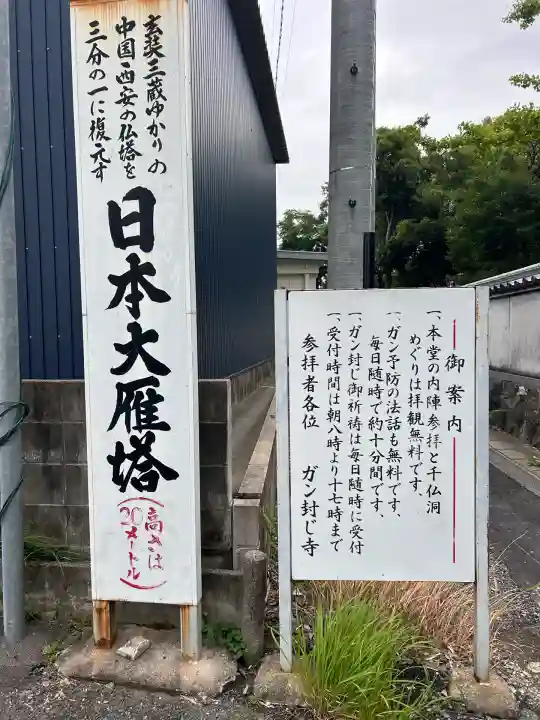 玄奘三蔵ゆかりの
中国西安の仏塔を
三分の一に復元す
日本大雁塔
(高さは
20メートル)
御案内
一、本堂の内陣参拝と千仏洞
めぐりは拝観無料です。
一、ガン予防の法話も無料です、
毎日随時で約十分間です、
一、ガン封じ御祈祷は毎日随時に受付
一、受付時間は朝八時より十七時まで
参拝者各位 ガン封じ寺